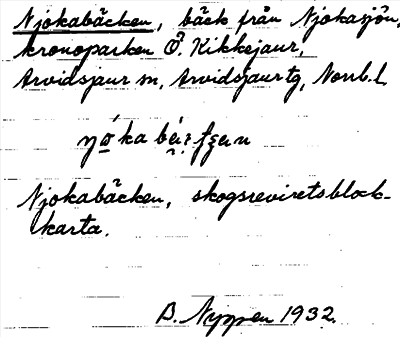 Njokabäcken, bäck från Njokasjön,
kronoparken Ö. Kikkejaur,
Arvidsjaur sn, Arvidsjaur tg, Norrb. l.
Njokabäcken, skogsrevirets block-
karta.
B. Nyppen 1932.